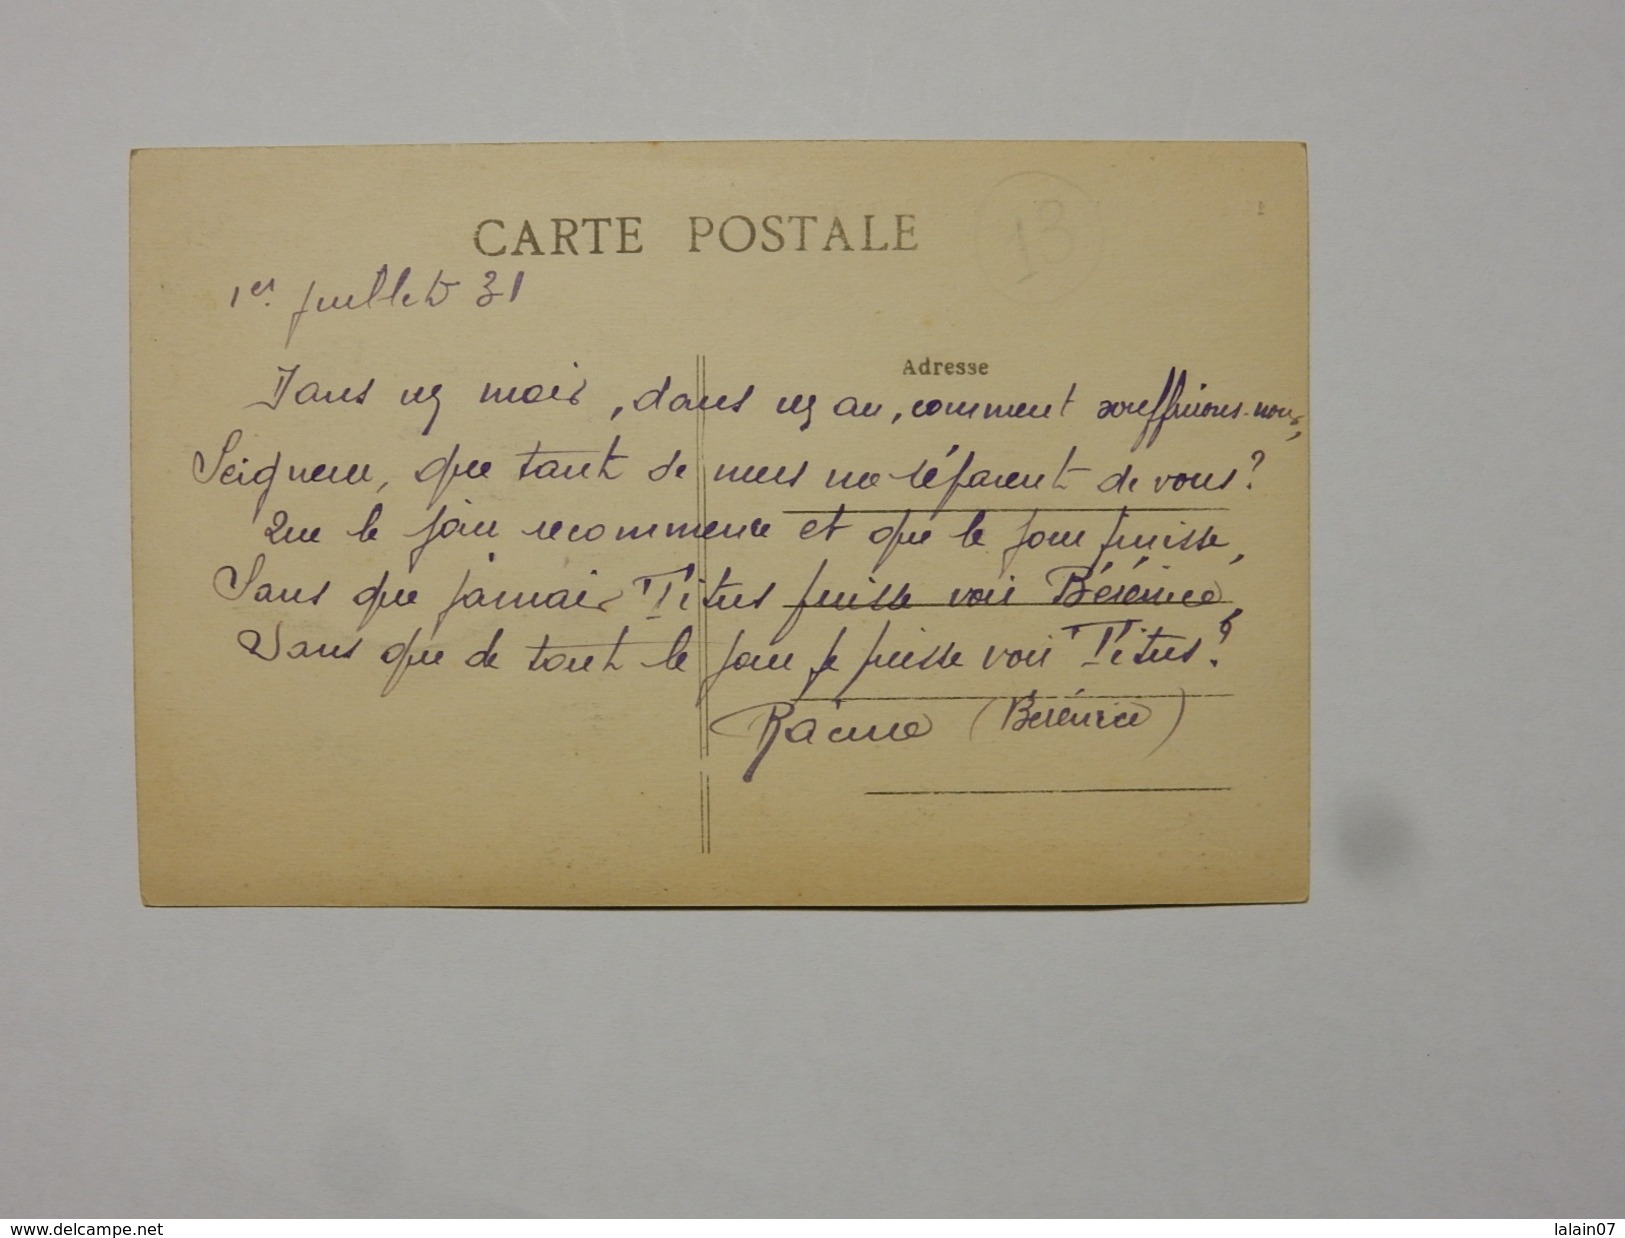 CARTE POSTALE
13
1er juillet 31
Adresse
Dans un mois, dans un an, comment souffrirons-nous,
Seigneur, que tant de mers me séparent de vous?
Que le jour recommence et que le jour finisse,
Sans que jamais Titus puisse voir Bérénice,
Sans que de tout le jour je puisse voir Titus?
Racine (Bérénice)
www.delcampe.net
lalain07